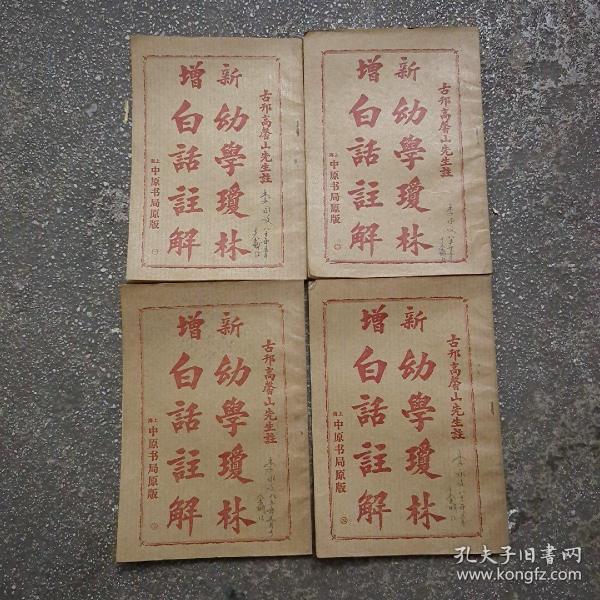 古邗高馨山先生註
新增
幼學瓊林
白話註解
上海 中原书局原版
㊀
古邗高馨山先生註
新增
幼學瓊林
白話註解
上海 中原书局原版
古邗高馨山先生註
新增
幼學瓊林
白話註解
上海 中原书局原版
古邗高馨山先生註
新增
幼學瓊林
白話註解
上海 中原书局原版
孔夫子旧书网
www.kongfz.com